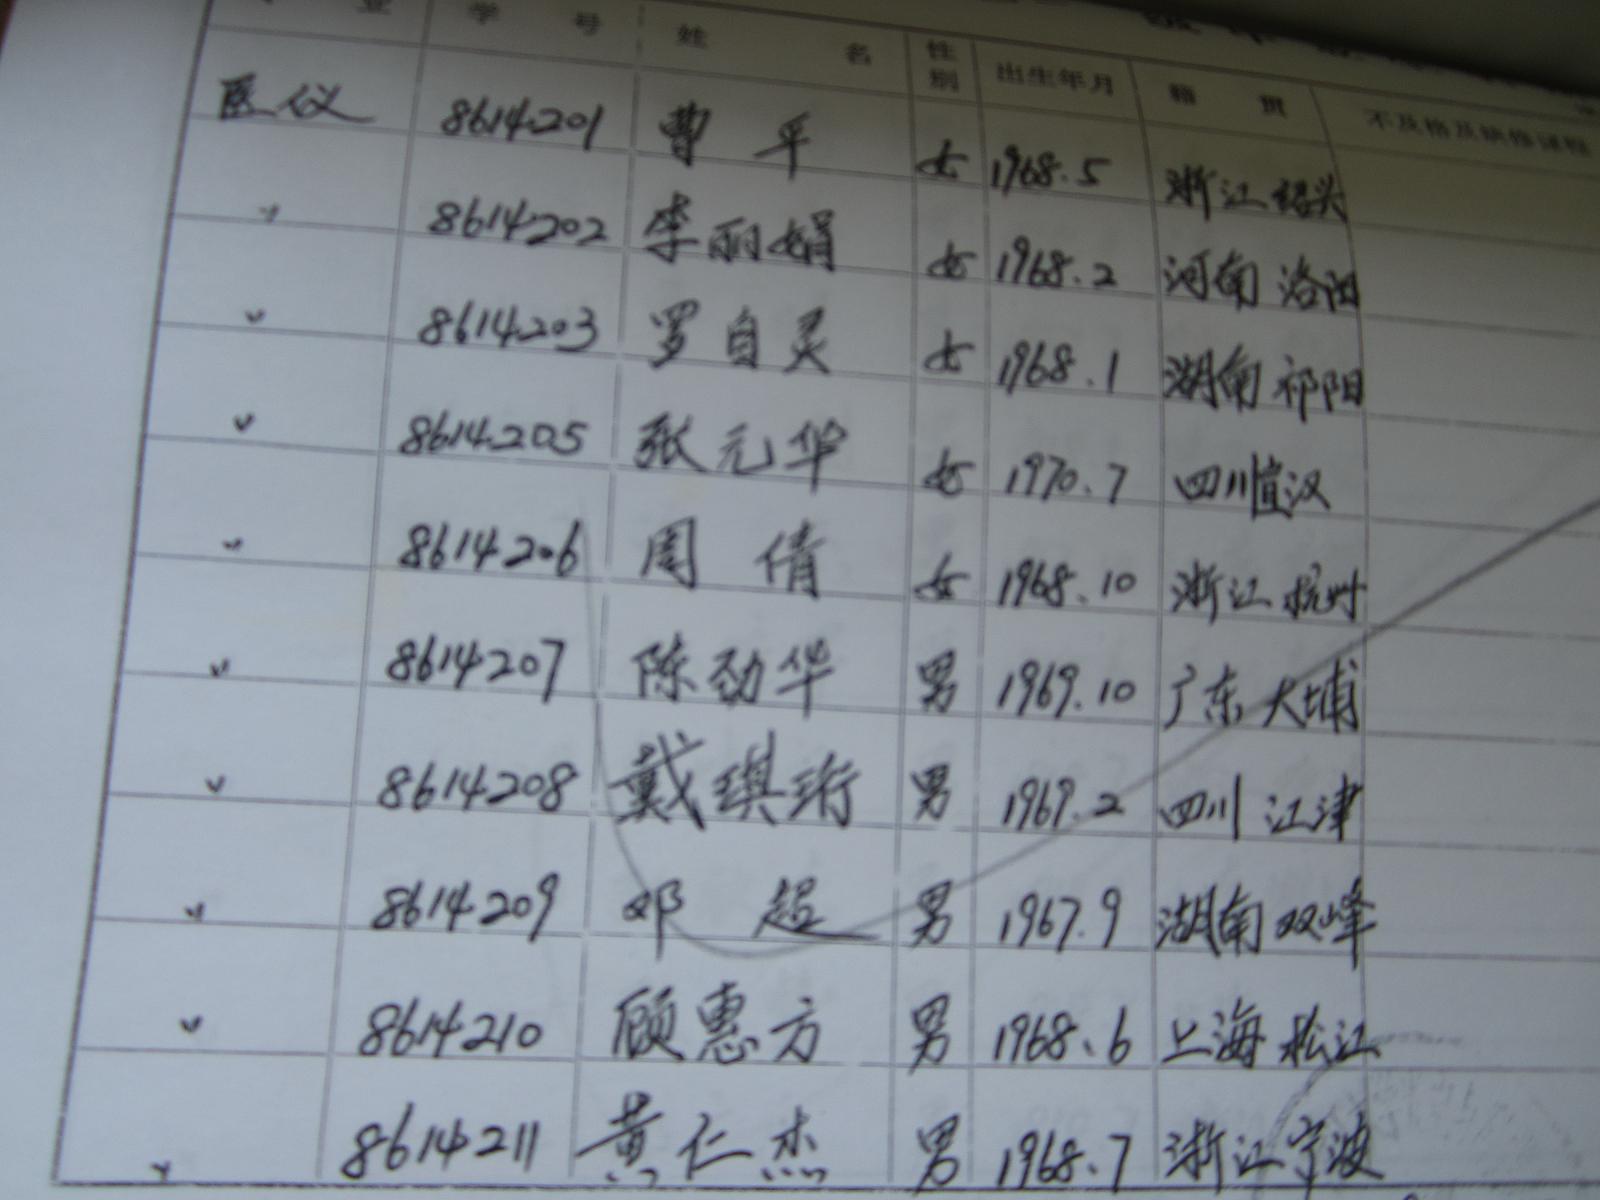 业 学号 姓名 性别 出生年月 籍贯 不及格及缺修课程
医仪 8614201 曹平 女 1968.5 浙江绍兴
〃 8614202 李丽娟 女 1968.2 河南洛阳
〃 8614203 罗自灵 女 1968.1 湖南祁阳
〃 8614205 张元华 女 1970.7 四川宣汉
〃 8614206 周倩 女 1968.10 浙江杭州
〃 8614207 陈劲华 男 1969.10 广东大埔
〃 8614208 戴琪珩 男 1969.2 四川江津
〃 8614209 邓超 男 1967.9 湖南双峰
〃 8614210 顾惠方 男 1968.6 上海松江
〃 8614211 黄仁杰 男 1968.7 浙江宁波